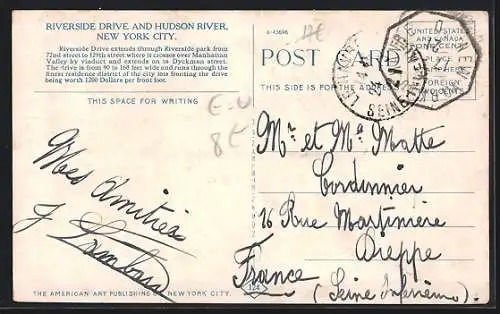 RIVERSIDE DRIVE AND HUDSON RIVER,
NEW YORK CITY.
Riverside Drive extends through Riverside park from
72nd street to 129th street where it crosses over Manhattan
Valley by viaduct and extends on to Dyckman street.
The drive is from 90 to 168 feet wide and runs through the
finest residence district of the city lots fronting the drive
being worth 1200 Dollars per front foot.
THIS SPACE FOR WRITING
E-U
8€
Mes Amitiés
THE AMERICAN ART PUBLISHING CO., NEW YORK CITY.
POST CARD
THIS SIDE IS FOR THE ADDRESS
UNITED STATES
AND CANADA
ONE CENT
PLACE
FOREIGN
TWO CENTS
LE HAVRE
SEINE
Mr et Me Matte
Cordonnier
16 Rue Martinière
Dieppe
France
(Seine Inférieure)